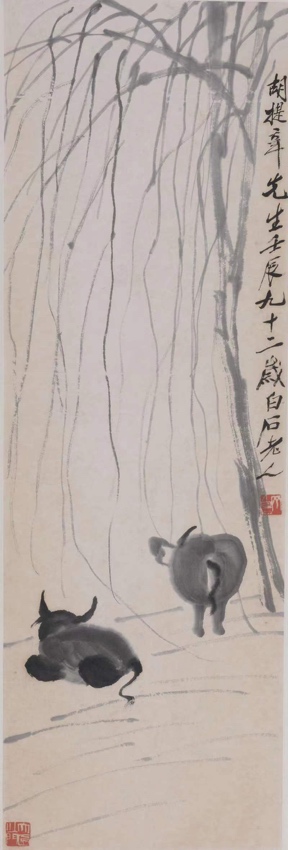 胡提聿先生壬辰九十二歲白石老人